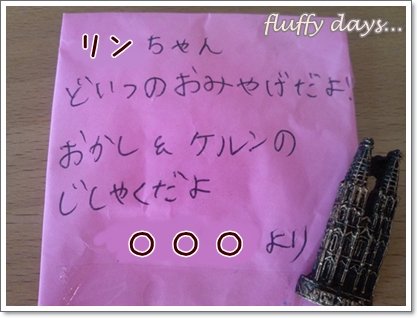 fluffy days...
リンちゃん
どいつのおみやげだよ!
おかし & ケルンの
じしゃくだよ
〇 〇 〇 より